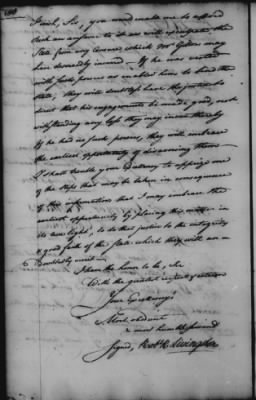 I wish, Sir, you would make me to afford
such an answer to it as will exculpate the
State from any censure which Mr Gillon may
have deservedly incurred — If he was vested
with such powers as enabled him to bind the
State, they will doubtless have the justice to
direct that his engagements be made good, not
withstanding any loss they may incur thereby
If he had no such powers, they will embrace
the earliest opportunity of disavowing them —
I shall trouble your Excellency to apprize me
of the steps that may be taken in consequence
of this information that I may embrace the
earliest opportunity by placing this matter in
its true light, to do that justice to the integrity
& good faith of the State which they will un
doubtedly merit —
I have the honor to be, Sir
With the greatest respect & esteem
Your Excellency's
Most obedient
& most humble servant
Signed, Robt R. Livingston